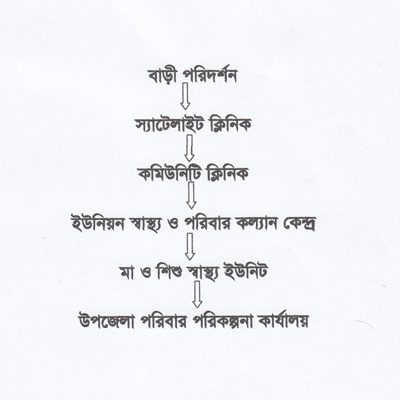 বাড়ী পরিদর্শন
স্যাটেলাইট ক্লিনিক
কমিউনিটি ক্লিনিক
ইউনিয়ন স্বাস্থ্য ও পরিবার কল্যান কেন্দ্র
মা ও শিশু স্বাস্থ্য ইউনিট
উপজেলা পরিবার পরিকল্পনা কার্যালয়